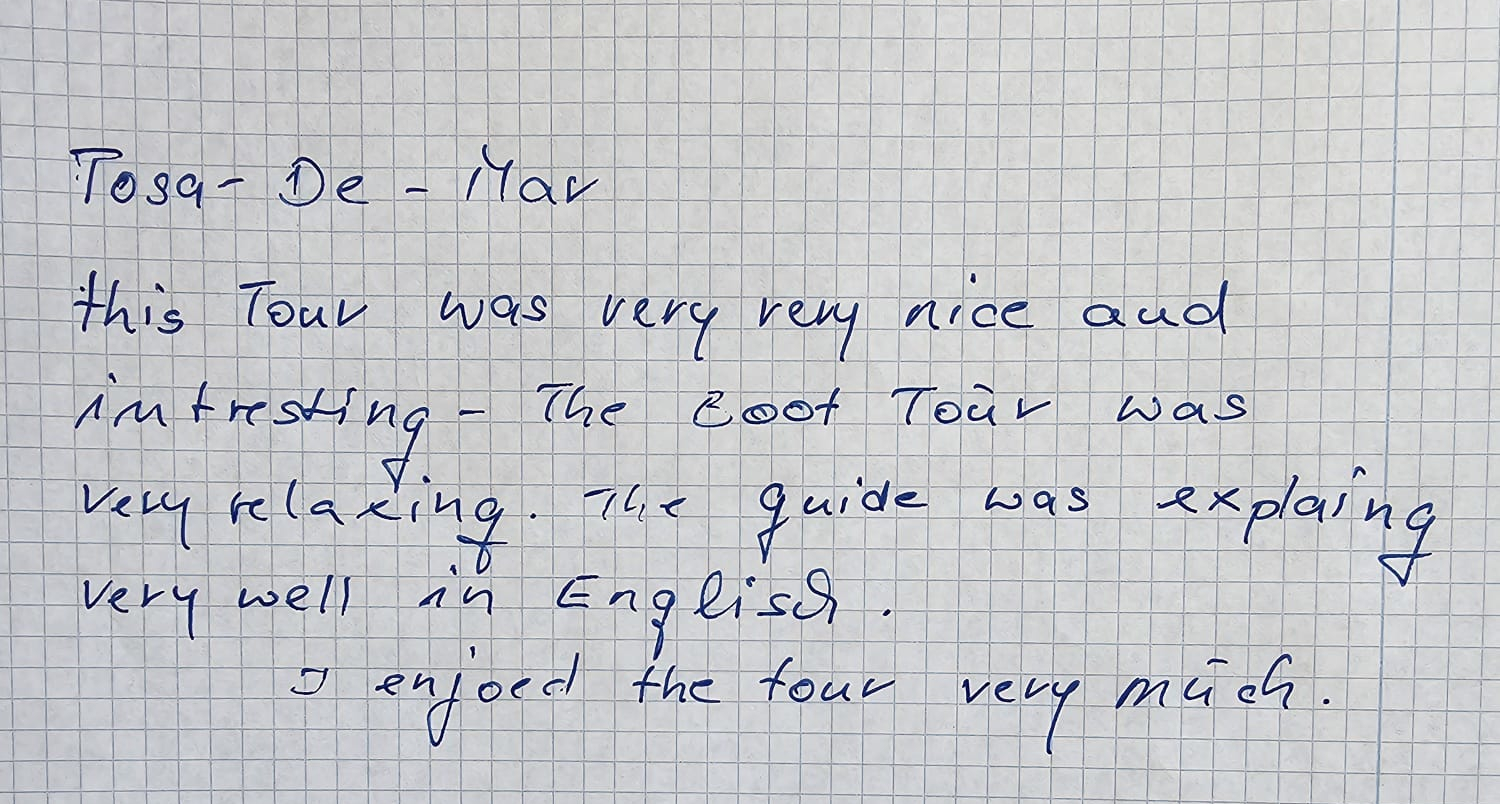 Tosa - De - Mar
this Tour was very very nice and
intresting - The Boot Tour was
very relaxing. The guide was explaing
very well in Englisch.
I enjoed the tour very much.